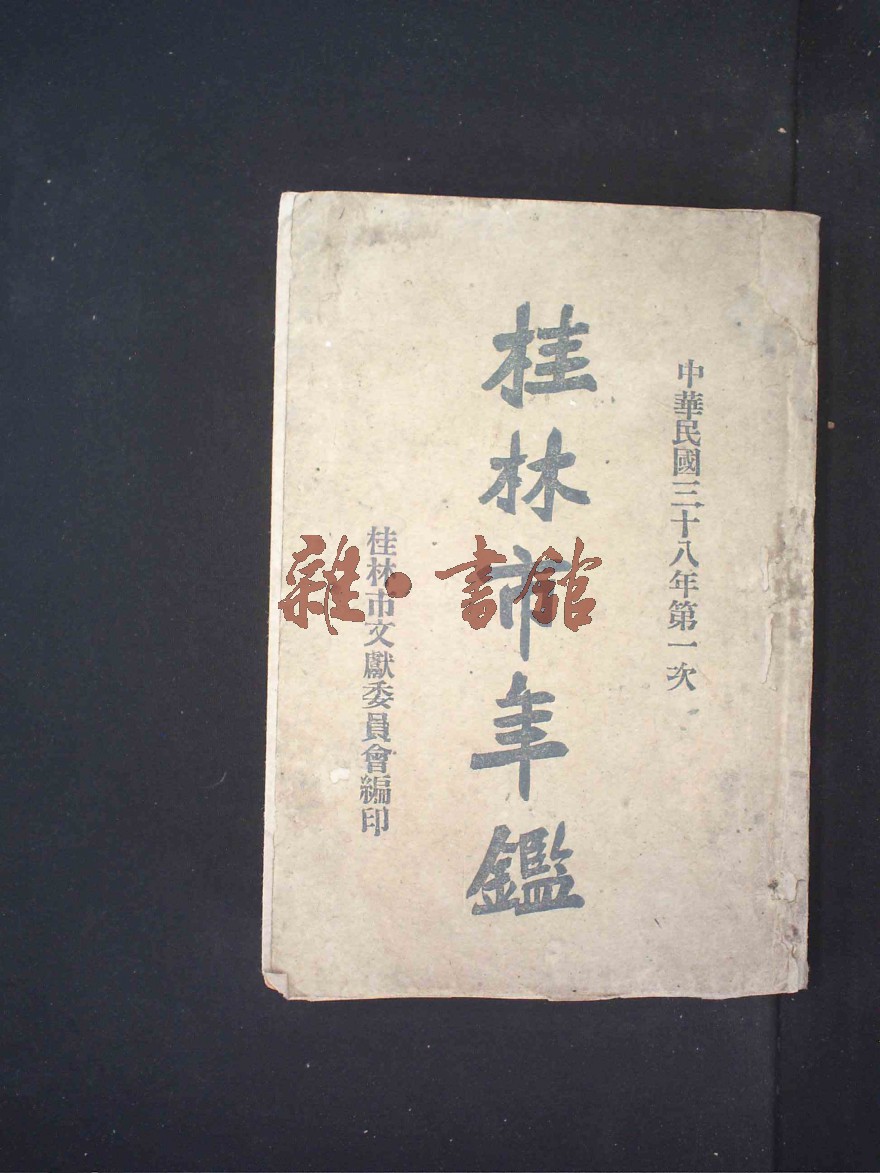 中華民國三十八年第一次
桂林市年鑑
桂林市文獻委員會編印
雜·書館